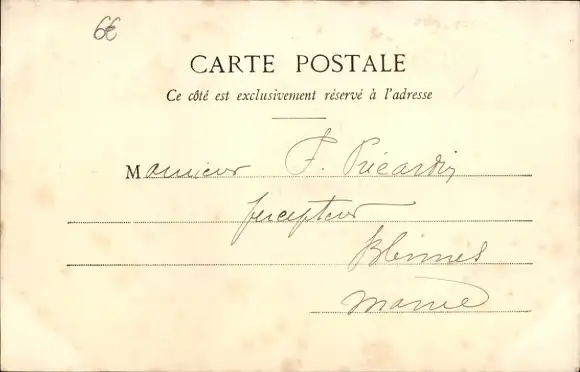 6€
CARTE POSTALE
Ce côté est exclusivement réservé à l'adresse
Monsieur F. Précardin
percepteur
Marne